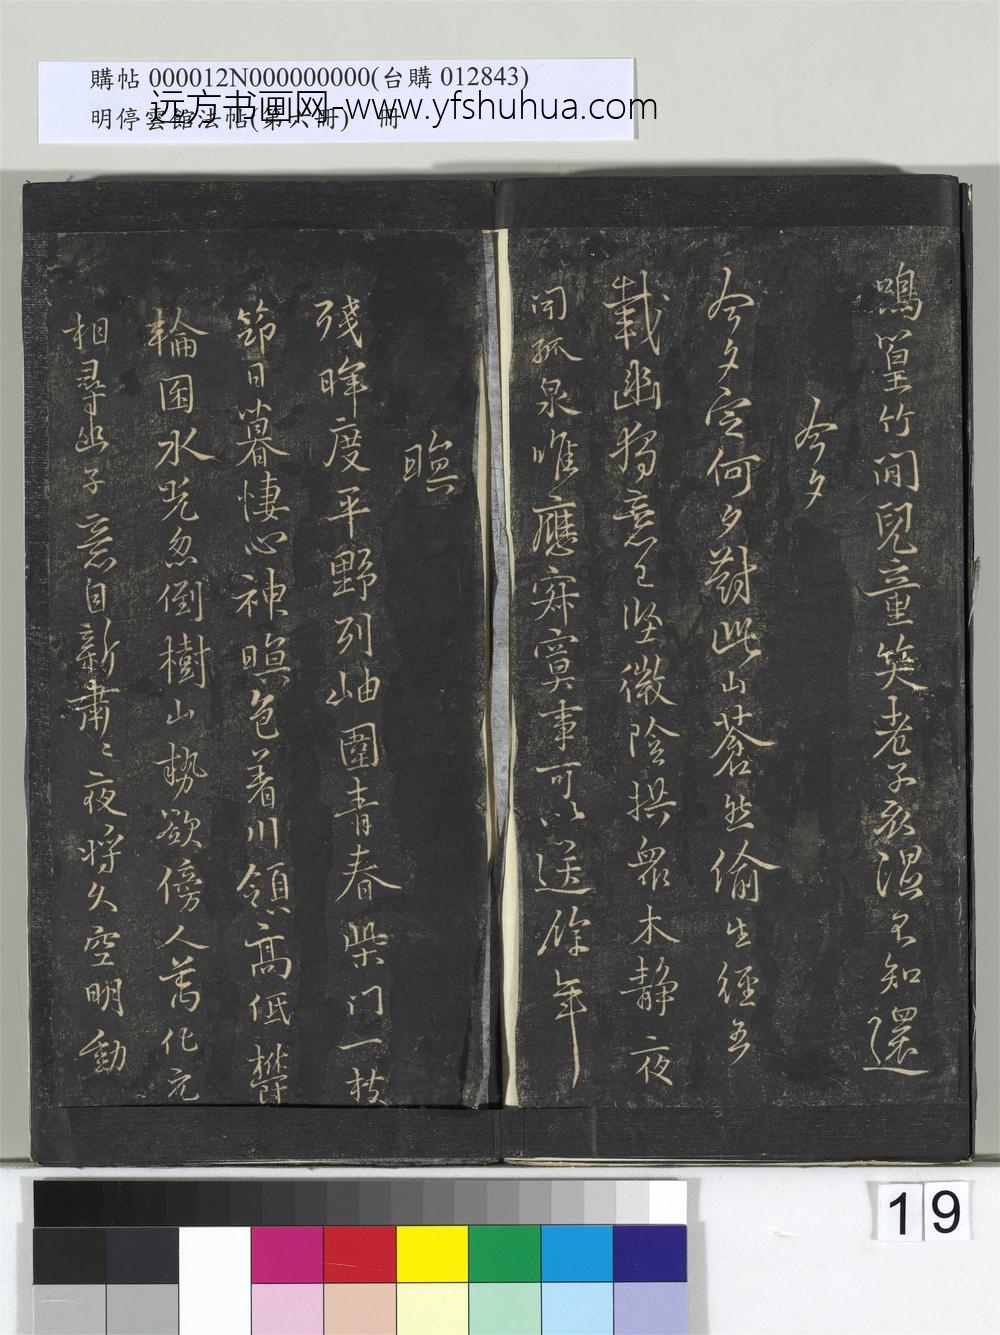 購帖 000012N000000000(台購 012843)
明停雲館法帖(第六冊) 冊
远方书画网-www.yfshuhua.com
鳴篁竹間兒童笑老子衣濕不知還
今夕
今夕定何夕對此山蒼然偷生經五
載幽獨意已堅微陰拱眾木靜夜
聞孤泉唯應寂寞事可以送餘年
暝
殘暉度平野列岫圍青春柴門一枝
筇日暮悽心神暝色着川領高低鬱
輪囷水光忽倒樹山勢欲傍人萬化元
相尋幽子意自新肅〻夜將久空明動
19